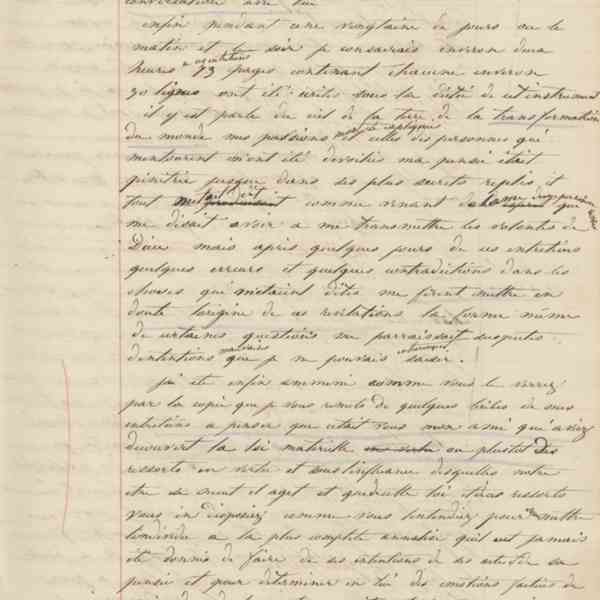 conversation avec lui
enfin pendant une vingtaine de jours ou le
matin et le soir je consacrais environ deux
heures 73 pages contenant chacune environ
30 lignes ont été écrites sous la dictée de cet instrument
il y est parlé du ciel de la terre de la transformation
du monde mes passions et celles des personnes qui
m'entourent m'ont été dévoilées ma pensée était
pénétrée jusque dans ses plus secrets replis et
tout était comme venant de
me disait avoir a me transmettre les volontés de
Dieu mais après quelques jours de ces entretiens
quelques erreurs et quelques contradictions dans les
choses qui m'etaient dites me firent mettre en
doute l'origine de ces revelations la forme même
de certaines questions me parraissait suspectes
d'intentions que je ne pouvais saisir.
j'ai été enfin ammené comme vous le verrez
par la copie que je vous remets de quelques de mes
entretiens a penser que c'était vous mon ami qui aviez
découvert la loi materielle ou plustot des
ressorts en vertu et sous l'influence desquelles notre
être se meut et agit et que de cette loi et de ces ressorts
vous en disposiez comme vous l'entendiez pour mettre
l'individu a la plus complète annalise qu'il ait jamais
été donnée de faire de ses intentions de ses actes de sa
pensée et pour déterminer en lui des émotions factices de